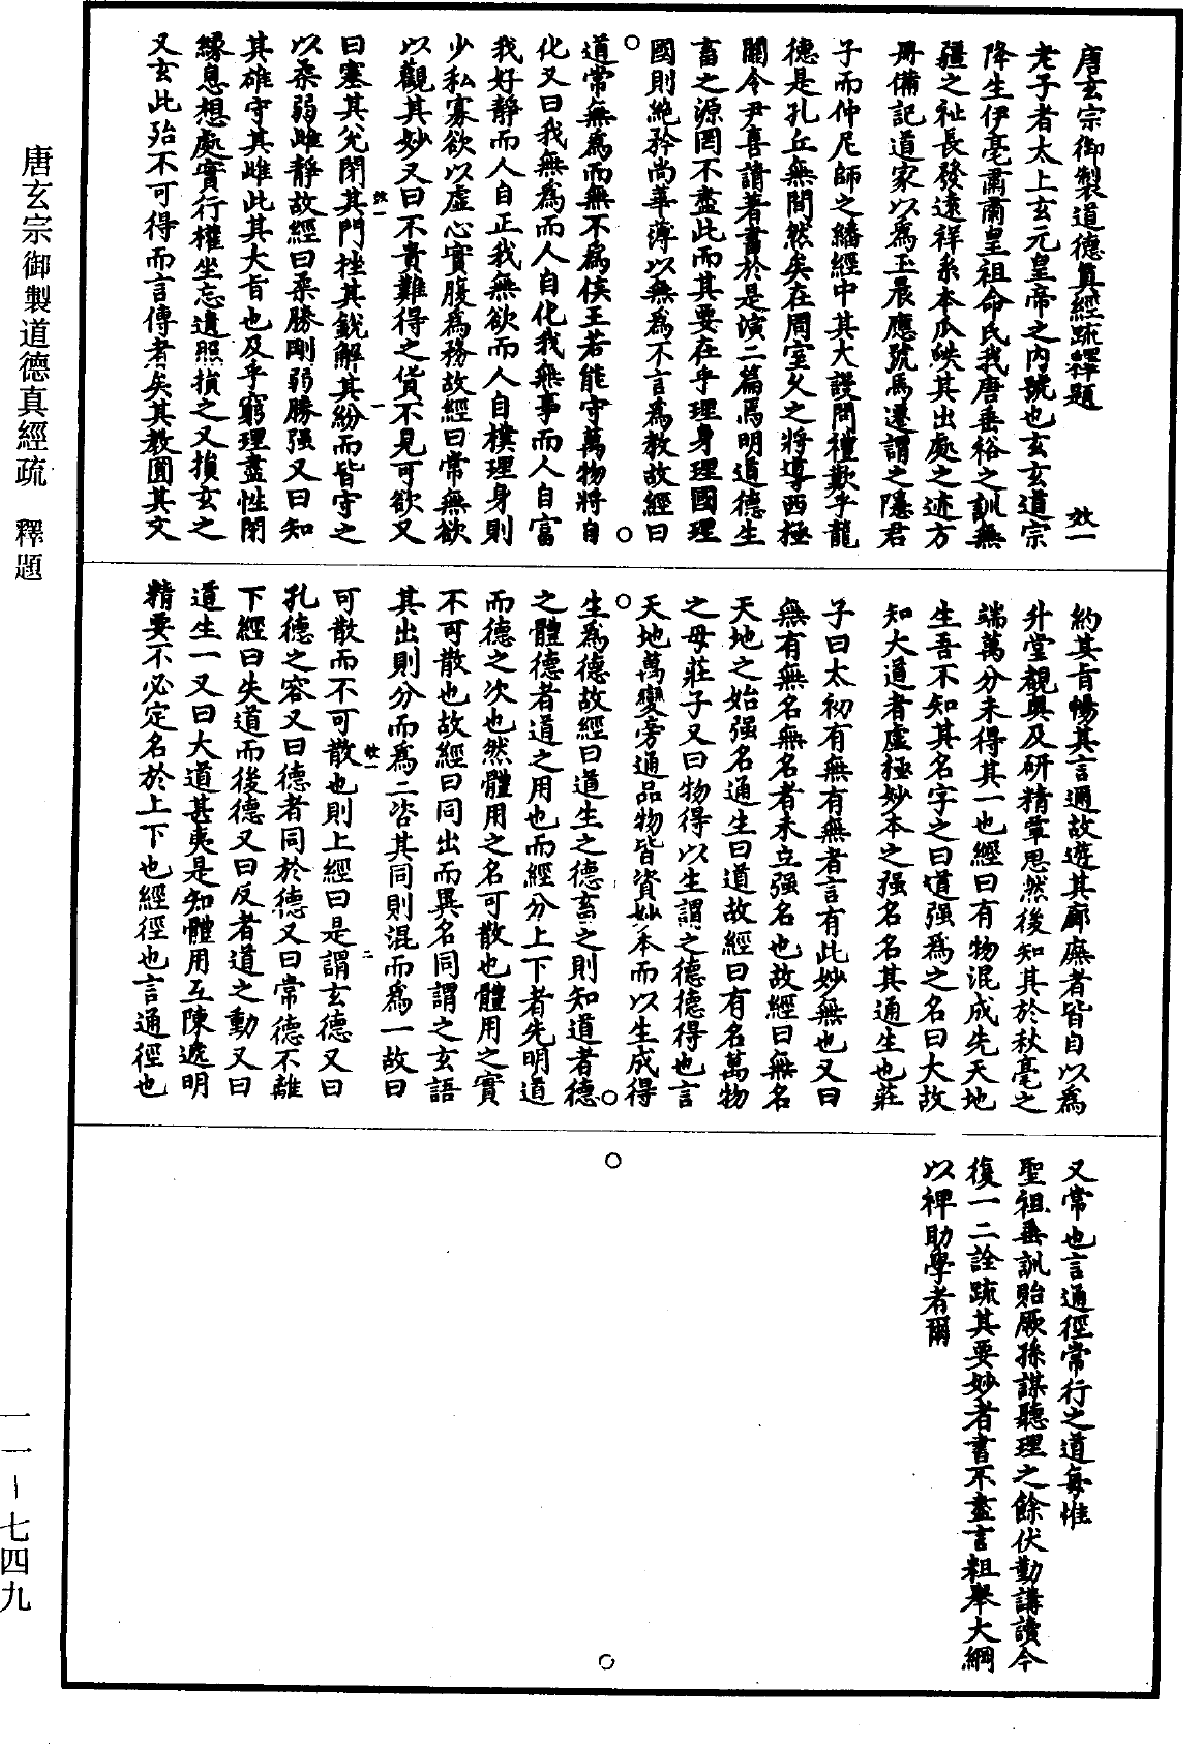 唐玄宗御製道德真經疏釋題 效一
老子者太上玄元皇帝之內號也玄玄道宗
降生伊亳肅肅皇祖命氏我唐垂裕之訓無
疆之祉長發遠祥系本瓜瓞其出處之迹方
冊備記道家以為玉晨應號馬遷謂之隱君
子而仲尼師之繙經中其大謾問禮歎乎龍
德是孔丘無間然矣在周室久之將導西極
關令尹喜請著書於是演二篇焉明道德生
畜之源罔不盡此而其要在乎理身理國理
國則絕矜尚華薄以無為不言為教故經曰
道常無為而無不為侯王若能守萬物將自
化又曰我無為而人自化我無事而人自富
我好靜而人自正我無欲而人自樸理身則
少私寡欲以虛心實腹為務故經曰常無欲
以觀其妙又曰不貴難得之貨不見可欲又
效一 一
曰塞其兌閉其門挫其銳解其紛而皆守之
以柔弱雌靜故經曰柔勝剛弱勝强又曰知
其雄守其雌此其大旨也及乎窮理盡性閉
緣息想處實行權坐忘遺照損之又損玄之
又玄此殆不可得而言傳者矣其教圓其文
約其旨暢其言邇故遊其廊廡者皆自以為
升堂覩奧及研精覃思然後知其於秋毫之
端萬分未得其一也經曰有物混成先天地
生吾不知其名字之曰道强為之名曰大故
知大道者虛極妙本之强名名其通生也莊
子曰太初有無有無者言有此妙無也又曰
無有無名無名者未立强名也故經曰無名
天地之始强名通生曰道故經曰有名萬物
之母莊子又曰物得以生謂之德德得也言
天地萬變旁通品物皆資妙本而以生成得
生為德故經曰道生之德畜之則知道者德
之體德者道之用也而經分上下者先明道
而德之次也然體用之名可散也體用之實
不可散也故經曰同出而異名同謂之玄語
其出則分而為二咨其同則混而為一故曰
效一 二
可散而不可散也則上經曰是謂玄德又曰
孔德之容又曰德者同於德又曰常德不離
下經曰失道而後德又曰反者道之動又曰
道生一又曰大道甚夷是知體用互陳遞明
精要不必定名於上下也經徑也言通徑也
又常也言通徑常行之道每惟
聖祖垂訓貽厥孫謀聽理之餘伏勤講讀今
復一二詮疏其要妙者書不盡言粗舉大綱
以裨助學者爾
唐玄宗御製道德真經疏 釋題
一一—七四九